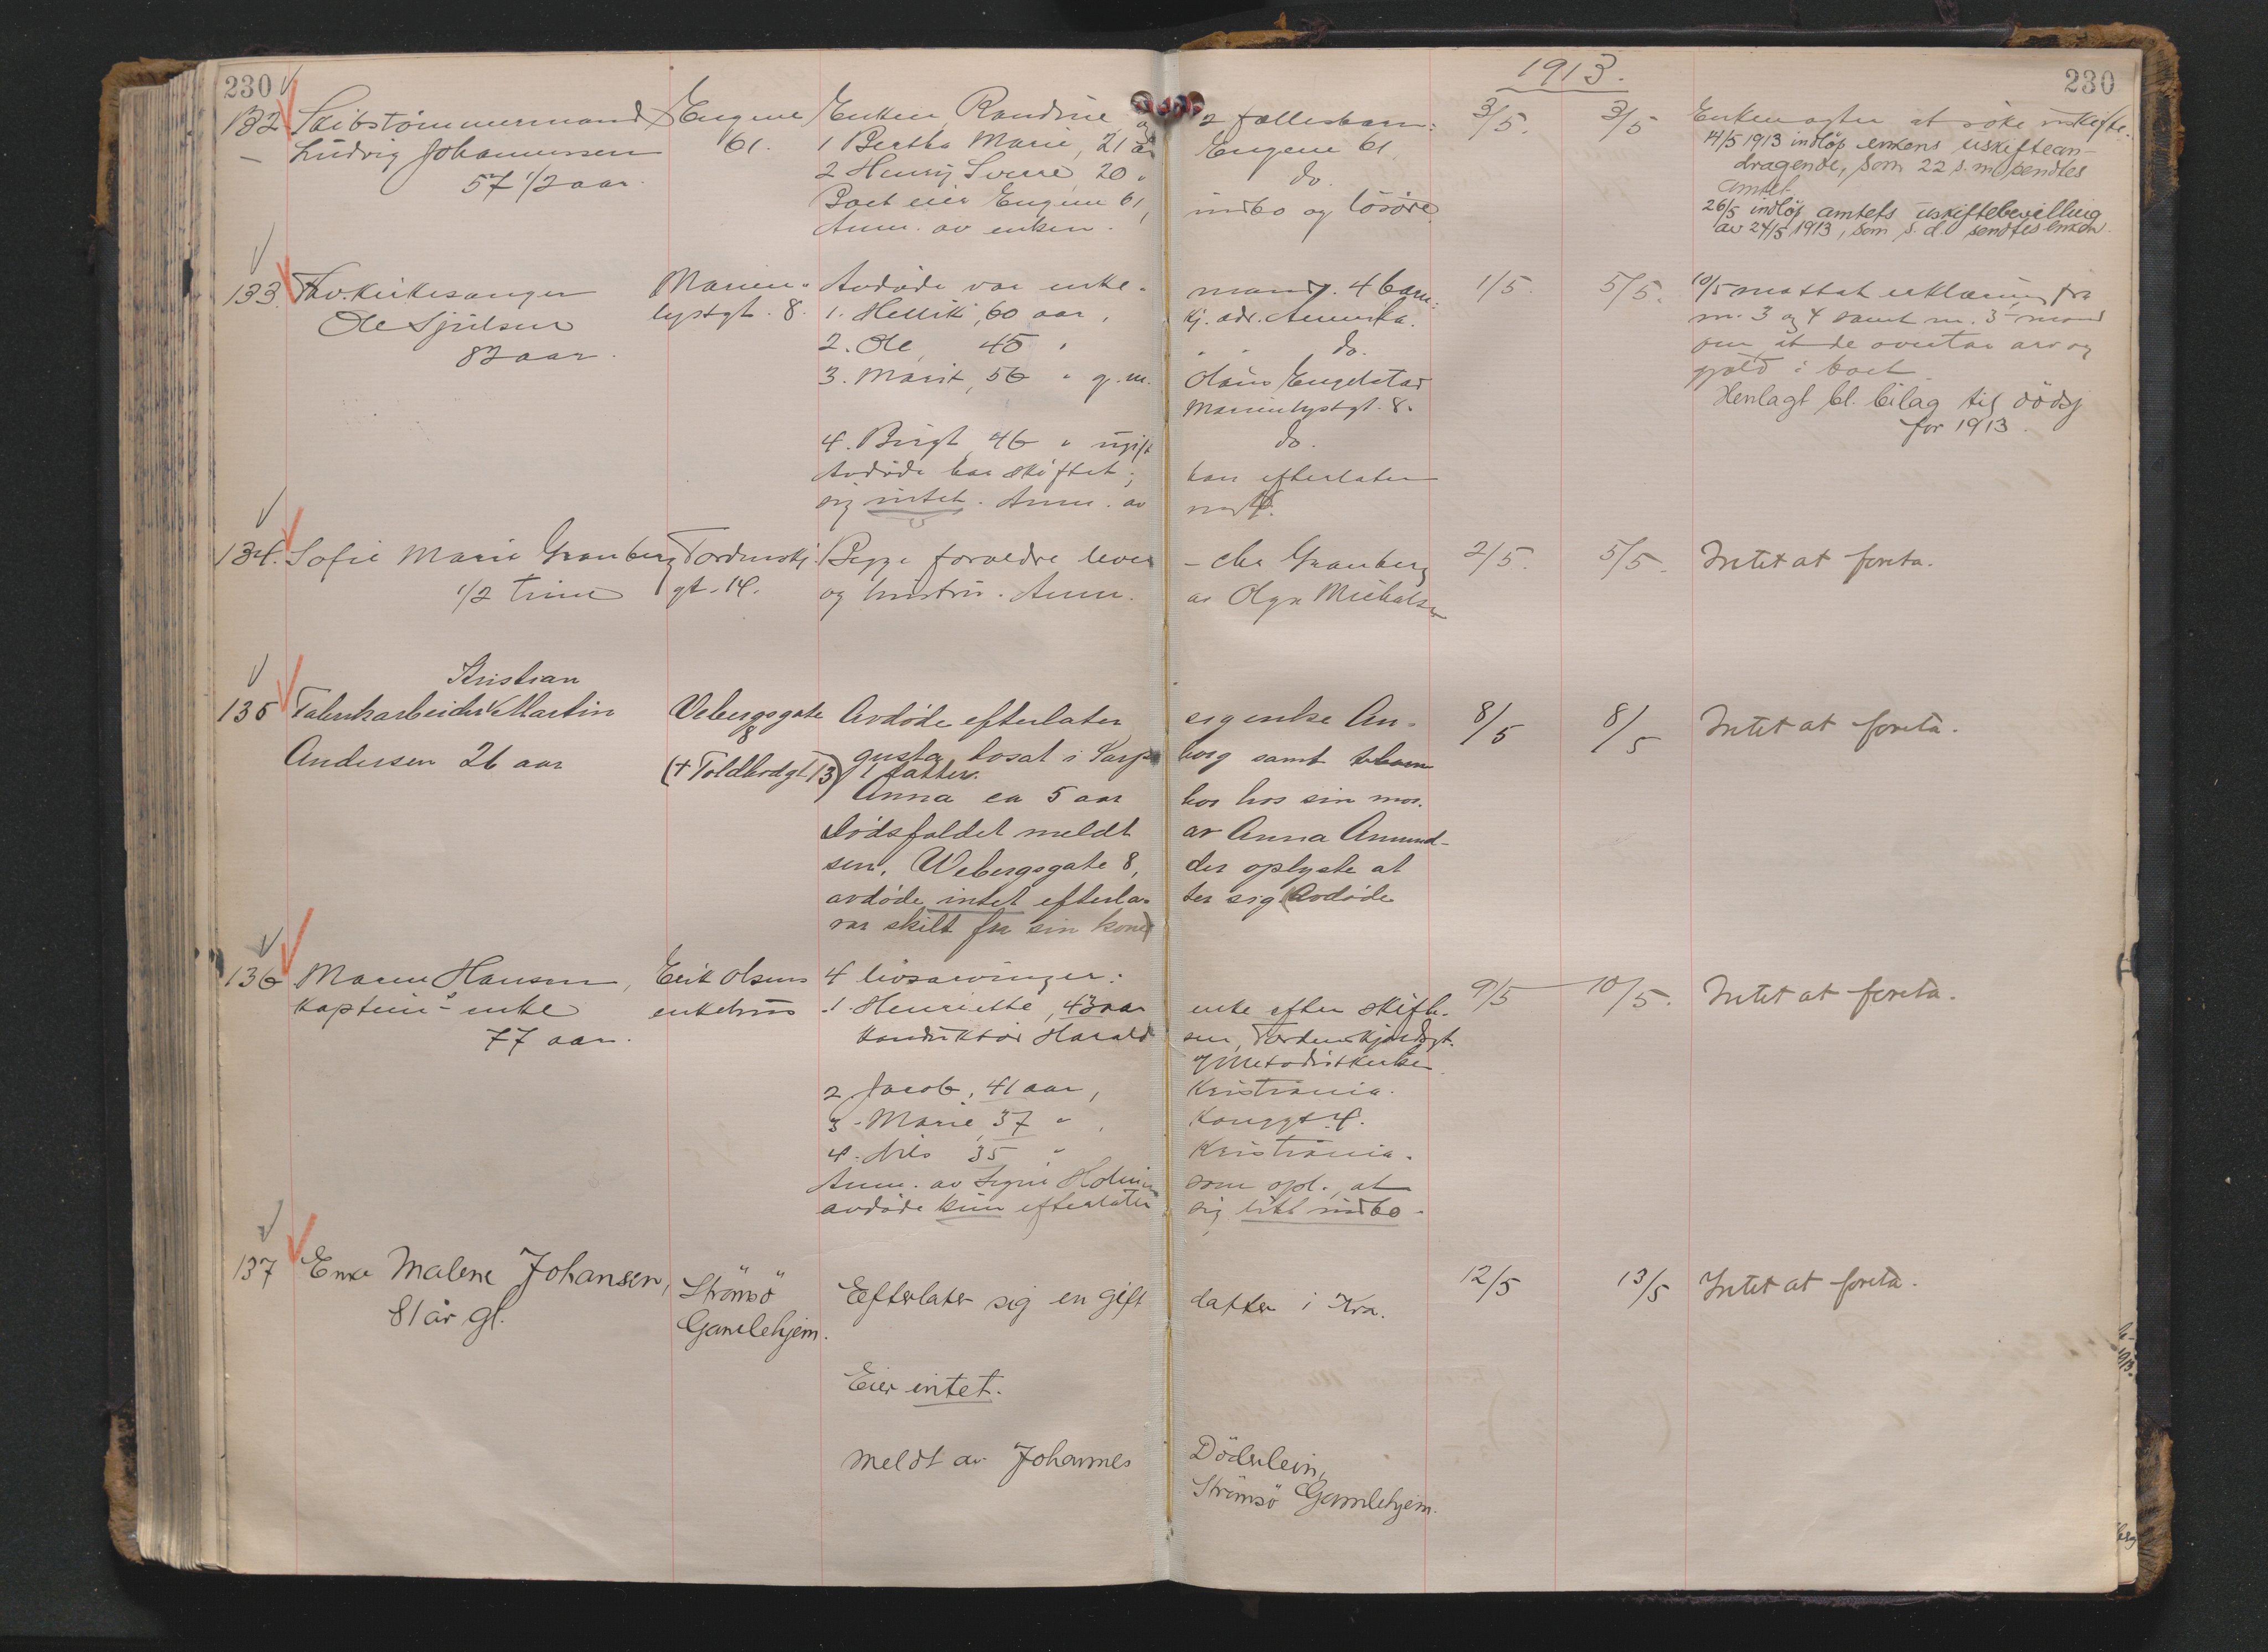 230
1913.
230
132 Skibstömmermand Engene Enken Randine og 2 fællesbarn: 3/5. 3/5 Enken agter at söke uskifte.
Ludvig Johannessen 61. 1 Bertha Marie, 21 år Engene 61 14/5 1913 indløp enkens uskiftean-
57 1/2 aar. 2 Henry Sverre, 20 " do. dragende, som 22 s.m. sendtes
amtet.
Boet eier Engene 61, indbo og lösöre 26/5 indløp amtets uskiftebevilling
Anm. av enken. av 24/5 1913, som s.d. sendtes enken.
133. Fhv. kirkesanger Marien- Avdöde var enke- mand. 4 barn: 1/5. 5/5. 10/5 mottat erklæring fra
Ole Sjulsen lystgt. 8. 1. Hellik, 60 aar, Kj. adr. Amerika. nr. 3 og 4 samt nr. 3's mand
82 aar. 2. Ole, 45 " " " do. om at de overtar arv og
3. Marit, 56 " g.m. Olaus Engelstad gjæld i boet.
Marienlystgt. 8. Henlagt bl. bilag til dödsj
for 1913.
4. Birgit, 46 " ugift do.
Avdöde har skiftet; han efterlater
sig intet. Anm. av nr. 4.
134. Sofie Marie Granberg Tordenskj. Begge forældre lever - Granberg 2/5. 5/5. Intet at foreta.
1/2 time gt. 14. og hustru. Anm. av Olga Mickalsen
Kristian
135 Fabrikarbeider Martin Webergsgate Avdöde efterlater sig enke Au- 8/5 8/5 Intet at foreta.
Andersen 26 aar 8 gusta, bosat i Sarps borg samt
(+ Toldbodgt 13) 1 datter.
Anna ca 5 aar bor hos sin mor.
Dödsfaldet meldt av Anna Amund-
sen, Webergsgate 8, der oplyste at
avdöde intet efterla- ter sig (Avdöde
var skilt fra sin kone)
136 Maren Hansen, Erik Olsens 4 livsarvinger: 9/5 10/5. Intet at foreta.
kaptein's enke enkehus 1. Henriette, 43 aar enke efter skifte-
77 aar. konduktör Harald sen, Tordenskjoldsgt.
v/Metodistkirken
2. Jacob, 41 aar, Kristiania.
3. Marie, 37 " , Konggt. 4.
4. Nils 35 " Kristiania.
Anm. av Signe Holmen som opl. at
avdöde kun efterlater sig litt indbo.
137 Enke Malene Johansen, Strömsö Efterlater sig en gift datter i Kra. 12/5 13/5 Intet at foreta.
81 år gl. Gamlehjem.
Eier intet.
Meldt av Johannes Döderlein,
Strömsö Gamlehjem.